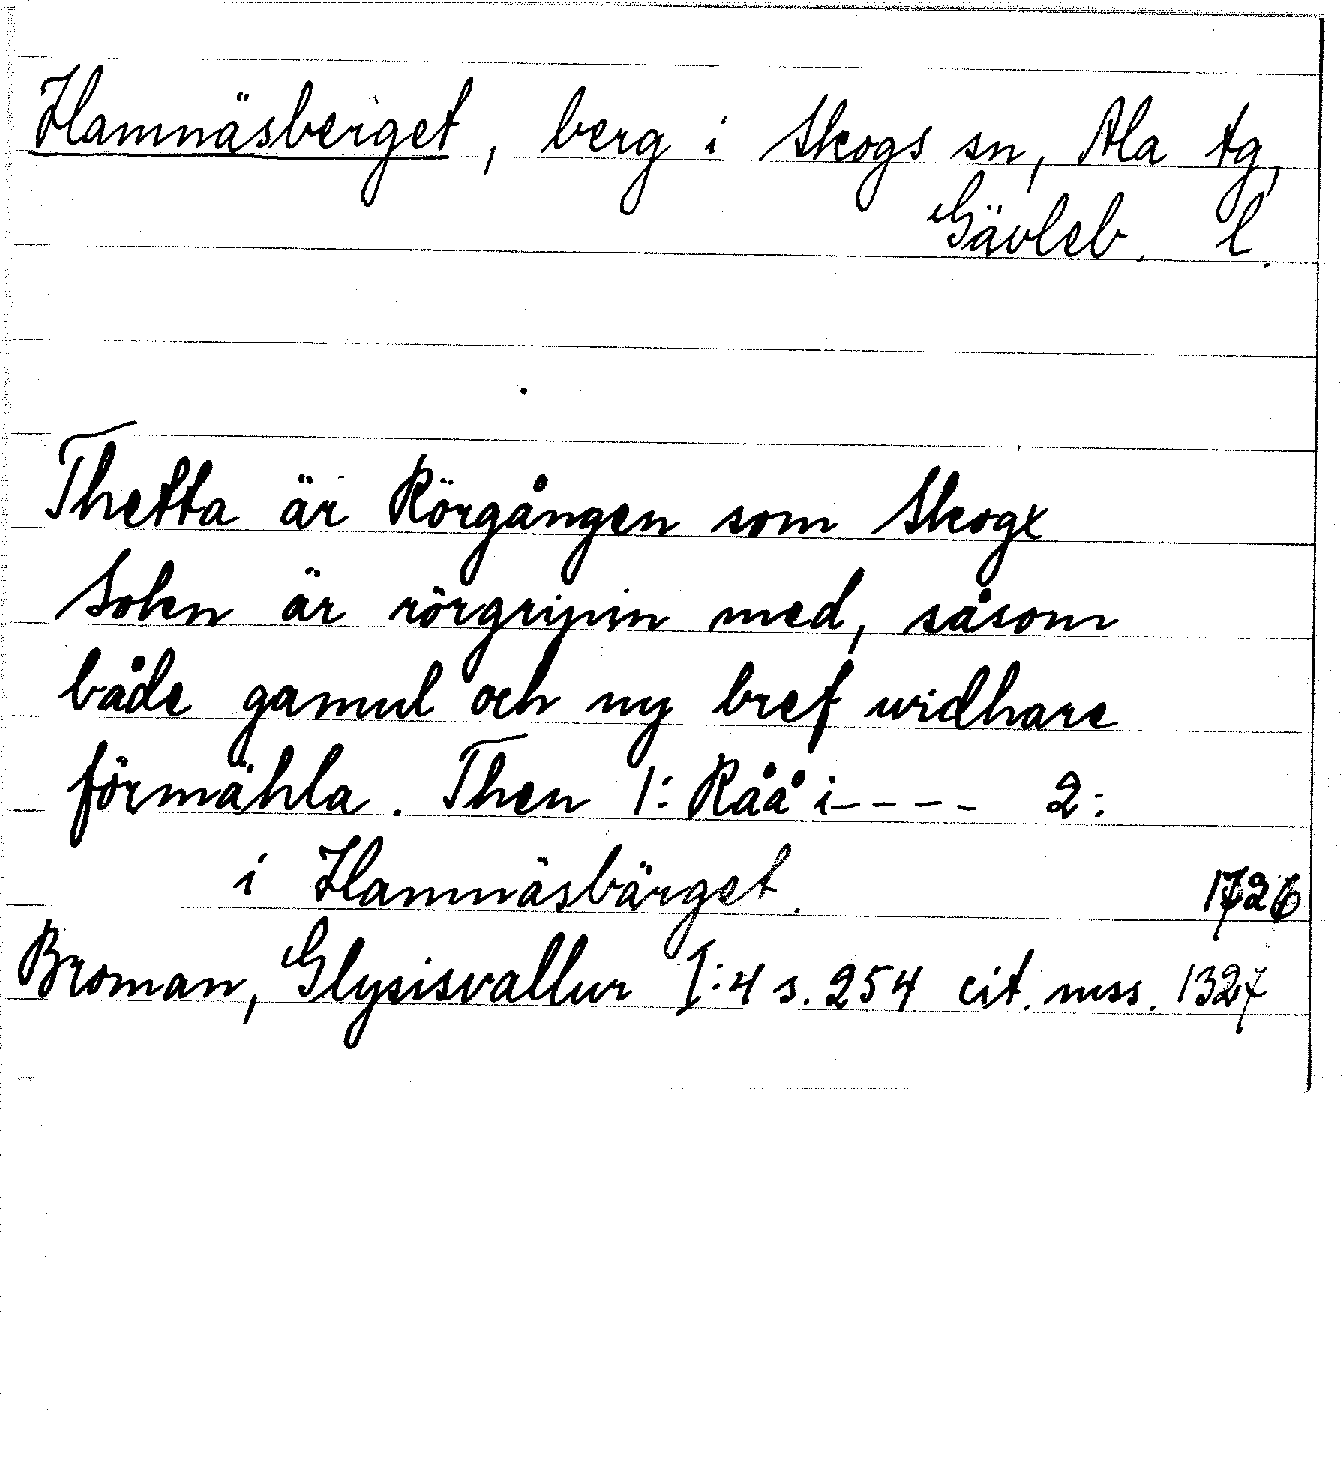 Hamnäsberget, berg i Skogs sn, Ala tg,
Gävleb. l.
Thetta är Rörgången som Skogx
Sokn är rörgripin med, såsom
både gamul och ny bref widhare
förmähla. Then 1: Råå i---- 2:
i Hamnäsbärget. 1726
Broman, Glysisvallur I:4 s. 254 cit. mss. 1327